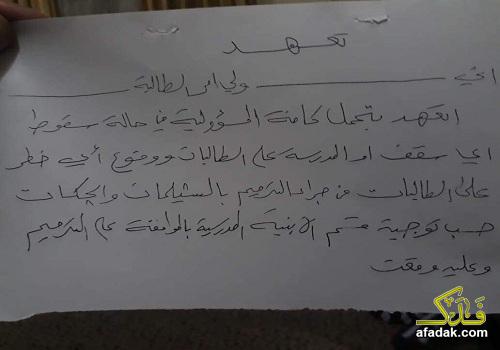 تعهد
اني ــــــــــــــــــ ولي امر الطالبة ــــــــــــــــــ
اتعهد بتحمل كافة المسؤولية في حالة سقوط
اي سقف او المدرسة على الطالبات ووقوع أي خطر
على الطالبات من جراء الترميم بالشيلمات والجكات
حسب توجية قسم الابنية المدرسية بالموافقة على الترميم
وعليه وقعت
فدك
afadak.com